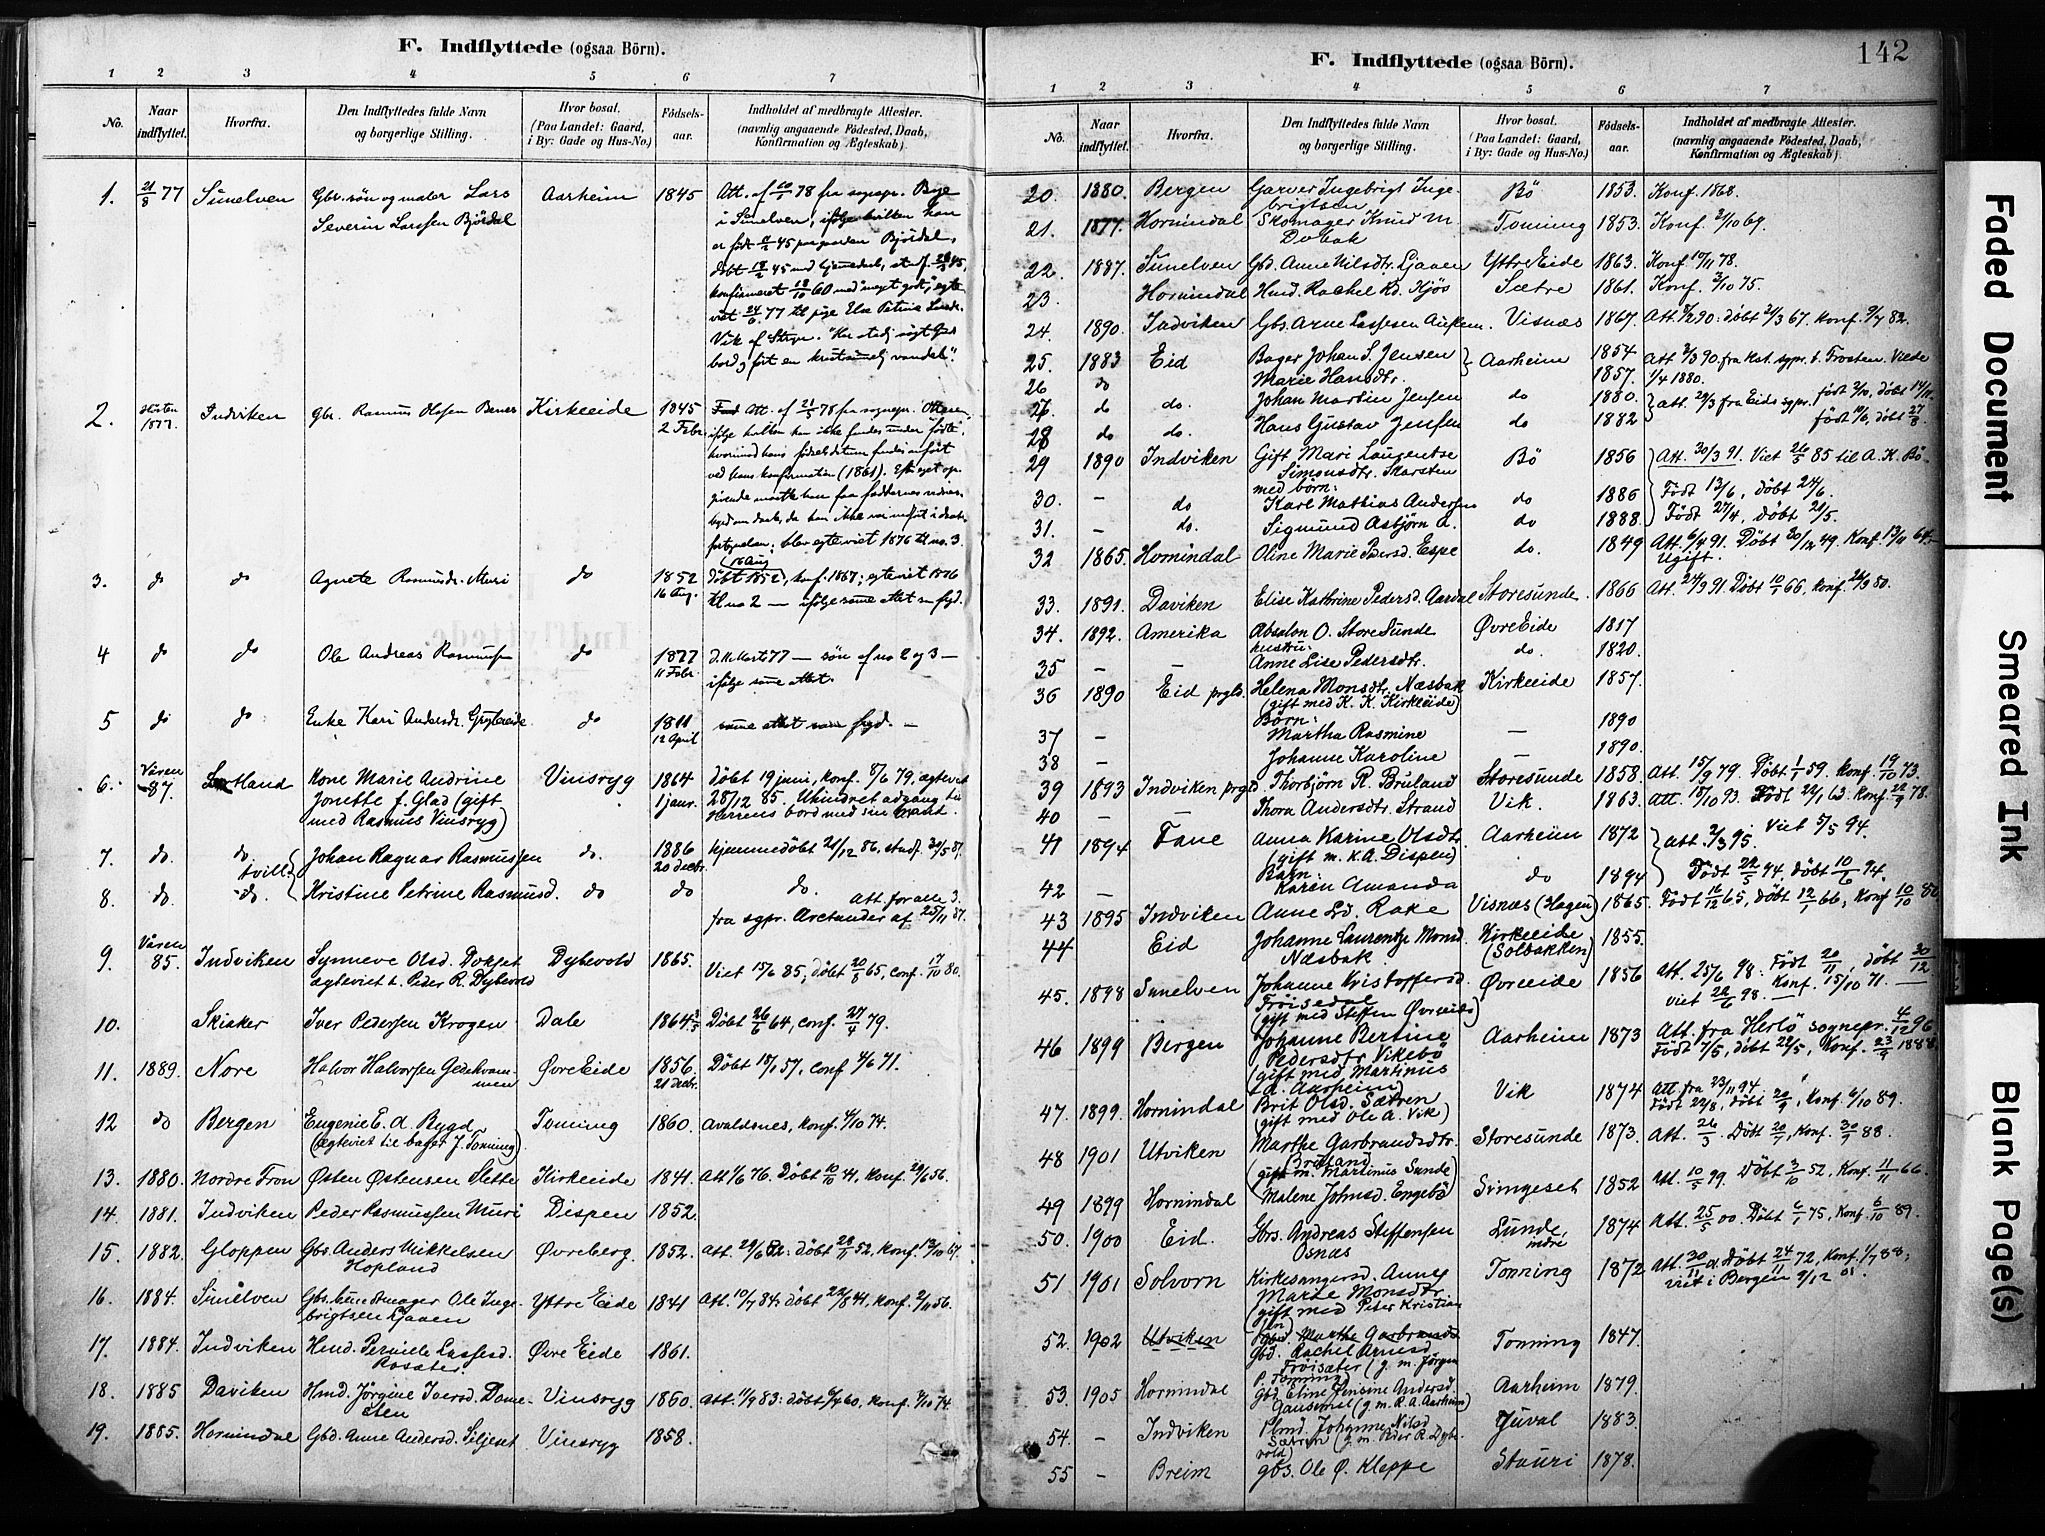 F. Indflyttede (ogsaa Börn).
1 2 3 4 5 6 7
No. Naar indflyttet. Hvorfra. Den Indflyttedes fulde Navn og borgerlige Stilling. Hvor bosat. (Paa Landet: Gaard, i By: Gade og Hus-No.) Födsels-aar. Indholdet af medbragte Attester. (navnlig angaaende Födested, Daab, Konfirmation og Ægteskab).
1. 21/8 77 Sunelven Gbr. søn og maler Lars Aarheim 1845 Att. af 10/5 78 fra sognepr. Bye
Severin Larssen Bjørdal i Sunelven, ifølge hvilken han
er født 45 paa gaarden Bjørdal,
døbt 18/2 45
konfirmeret 18/10 60 med "meget godt", egte-
viet 24/6 77 til pige Else Petrine
Vik af Stryn.
bord og ført en kristumelig vandel".
2. Høsten 1877 Indviken Gbr. Rasmus Olsen Benes Kirkeeide 1845 Att. af 21/5 78 fra sognepr.
2 Febr. ifølge hvilken han ikke findes under fødte,
hvorimod hans fødselsdatum findes anført
ved hans konfirmation (1861). Eft. eget op-
givende
fortegnelsen; blev egteviet 1876 til no. 3.
3. do do Agnete Rasmusdr. Muri do 1852 døbt 1852, (16 Aug) konf. 1867; egteviet 1876
16 Aug. til no 2 — ifølge samme attest som fgd.
4 do do Ole Andreas Rasmussen do 1877 d. 11 Marts 77 — søn af no 2 og 3 —
11 Febr. ifølge samme attest.
5 do do Enke Kari Andersdr. Gryteeide do 1811 samme attest som fgd. —
12 April
6. Våren 87. Hand Kone Marie Andrine Vinsryg 1864 Døbt 19 juni, konf. 8/6 79, ægteviet
Jonette f. Glad (gift 1 janr. 28/12 85. Uhindret adgang til
med Rasmus Vinsryg) Herrens bord med sin
7. do. do tvill. Johan Ragnar Rasmussen do. 1886 hjemmedøbt 21/12 86, stadf. 30/5 87.
20 decbr.
8. do. do. Kristine Petrine Rasmusd. do do do. Att. for alle 3.
fra sgpr. Arctander af 25/11 87.
9. Våren 85. Indviken Synneve Olsd. Dokset Dybevold 1865. Viet 15/6 85, døbt 20/8 65, conf. 17/10 80.
ægteviet t. Peder R. Dybevold
10. Skiaker Iver Pedersen Krogen Dale 1864 Døbt 26/6 64, conf. 27/4 79.
11. 1889. Nore Halvor Halvorsen Gedekvam- Øvre Eide 1856. Døbt 18/1 57, conf 4/6 71.
men 21 Decbr.
12 do Bergen Eugenie E. A. Bygd Tonning 1860. Avaldsnes, Konf. 4/10 74.
(ægteviet til bager J. Tonning)
13. 1880. Nordre Fron Østen Østensen Slette Kirkeeide 1841. Att 1/6 76. Døbt 10/10 41, Konf. 29/6 56.
14. 1881. Indviken Peder Rasmussen Muri Dispen 1852.
15. 1882. Gloppen Gbs. Anders Mikkelsen Øvreberg. 1852. Att. 29/6 82: døbt 28/5 52, Konf. 13/10 67.
Hopland
16. 1884. Sunelven Gbr. buntmager Ole Inge- Yttre Eide 1841 Att. 10/7 84: døbt 22/8 41, Konf. 2/11 56.
brigtsen Ljaaen
17. 1884. Indviken Hmd. Pernille Lassesd. Øvre Eide 1861.
Rosæter
18. 1885 Daviken Hmd. Jørgine Iversd. Dome- Vinsryg 1860. Att. 11/9 83: døbt 9/4 60, Konf. 4/10 74
sten
19. 1885. Hornindal Gbd. Anne Andersd. Seljeset Vinsryg 1858.
142
F. Indflyttede (ogsaa Börn).
1 2 3 4 5 6 7
No. Naar indflyttet. Hvorfra. Den Indflyttedes fulde Navn og borgerlige Stilling. Hvor bosat. (Paa Landet: Gaard, i By: Gade og Hus-No.) Födsels-aar. Indholdet af medbragte Attester. (navnlig angaaende Födested, Daab, Konfirmation og Ægteskab).
20. 1880. Bergen Garver Ingebrigt Inge- Bö 1853. Konf. 1868.
brigtsen
21. 1877. Hornindal Skomager Knud M. Tonning 1853. Konf. 21/10 69.
Dobak
22. 1887. Sunelven Gbd. Anne Nilsdtr. Ljaaen Yttre Eide 1863. Konf 17/11 78.
23. Hornindal Hmd. Rachel Kd. Kjös Sætre 1861. Konf. 3/10 75.
24. 1890. Indviken Gbs. Arne Lassesen Aukem. Visnæs 1867. Att. 7/12 90: døbt 21/3 67. Konf. 9/7 82.
25. 1883 Eid Bager Johan S. Jensen Aarheim 1854 Att 3/3 90. fra Kat. sgpr. t. Frosten. Viede
26 do Marie Hansdtr. 1857. 1/4 1880.
27. do do. Johan Martin Jensen do 1880. Att. 29/3 fra Eids sgpr. født 3/10, døbt 14/11.
28 do do. Hans Gustav Jensen do 1882 født 10/6, døbt 27/8.
29 1890 Indviken Gift Mari Laurentse Bö 1856 Att. 30/3 91. Viet 26/5 85 til A. K. Bö.
Simonsdtr. Skarsten
med börn:
30. — do Karl Mathias Andersen do 1886 Født 13/6, døbt 24/6.
31. — do. Sigmund Asbjörn A. do 1888. Født 27/4, døbt 21/5.
32 1865. Hornindal Oline Marie Pedersd. Espe do. 1849 Att. 6/4 91. Døbt 30/12 49. Konf. 13/11 64.
Ugift.
33. 1891. Daviken Elise Kathrine Pedersd. Aardal Storesunde. 1866 Att. 24/9 91. Døbt 10/1 66, Konf. 26/9 80.
34. 1892. Amerika Absalon O. Storesunde Øvre Eide 1817
hustru:
35 — — Anne Lise Pedersdtr. do. 1820.
36 1890 Eid prgld. Helena Monsdtr. Næsbak Kirkeeide 1857.
(gift med K. K. Kirkeeide)
Börn:
37 — Martha Rasmine — 1890
38 — Johanne Karoline — 1890.
39 1893 Indviken prgld Thorbjörn R. Bruland Storesunde 1858. Att. 15/9 79. Døbt 1/1 59. Konf. 19/10 73.
40 — Thora Andersdtr. Strand Vik. 1863. Att. 18/10 93. Født 22/1 63. Konf. 22/9 78.
41 1894 Fane Anna Karine Olsdtr. Aarheim 1872 Att. 2/3 95. Viet 5/5 94.
(gift m. K. A. Dispen)
Barn:
42 — Karen Amanda do 1894 Født 22/5 94, døbt 10/6 94.
43 1895 Indviken Anne Ld. Rake Visnæs (Hagen) 1865. Født 16/12 65, døbt 12/1 66, Konf 10/10 80
44 Eid Johanne Laurentze Monsd. Kirkeeide 1855.
Næsbak (Solbakken)
45. 1898 Sunelven Johanne Kristoffersd. Øvreeide 1856 Att. 25/6 98: Født 20/11, døbt 30/12.
Fröisedal Viet 26/6 98. — Konf. 15/10 71. —
(gift med Steffen Øvreeide)
46 1899 Bergen Johanne Bertine Aarheim 1873 Att. fra Herlö sognepr. 4/12 96.
Pedersdtr Vikebö Født 7/5, døbt 22/5, Konf. 23/9 1888.
(gift med Martinus
A. Aarheim)
47. 1899. Hornindal Brit Olsd. Sætren Vik 1874 Att fra 23/11 94.
(gift med Ole A. Vik) Født 22/8, døbt 20/9, Konf. 6/10 89.
48 1901 Utviken Marthe Garbrandsdtr. Storesunde 1873. Att. 26/3. Døbt 20/7, Konf. 30/9 88.
Breiland
(gift m. Martinus Sunde)
49 1899 Hornindal Malene Johnsd. Engebö Svingeset 1852 Att. 10/5 99. Døbt 3/10 52, Konf. 11/11 66.
50. 1900 Eid. Gbs. Andreas Steffensen Lunde, 1874 Att. 25/5 00. Døbt 6/1 75, Konf. 6/10 89.
Osnæs indre
51 1901 Solvorn Kirkesangersd. Anne Tonning 1872 Att. 30/11 01. Døbt 24/11 72, Konf. 1/7 88,
Marie Monsdtr viet i Bergen 9/12 01.
(gift med Peter Kristian
52. 1902 Utviken Gbd. Marthe Garbrands Tonning 1847.
Gbd. Rachel Arnesd
Fröisæter (g. m. Jörgen
P. Tonning)
53. 1905 Hornindal Gbd Eline Jensine Andersd. Aarheim 1879.
(g. m. R. A. Aarheim)
54. — Indviken Plmd. Johanne Nilsd Juval 1883.
Sætren (g. m. Peder R. Dybe-
vold)
55 — Breim Gbs. Ole Ø. Kleppe Stauri 1878.
Faded Document
Smeared Ink
Blank Page(s)